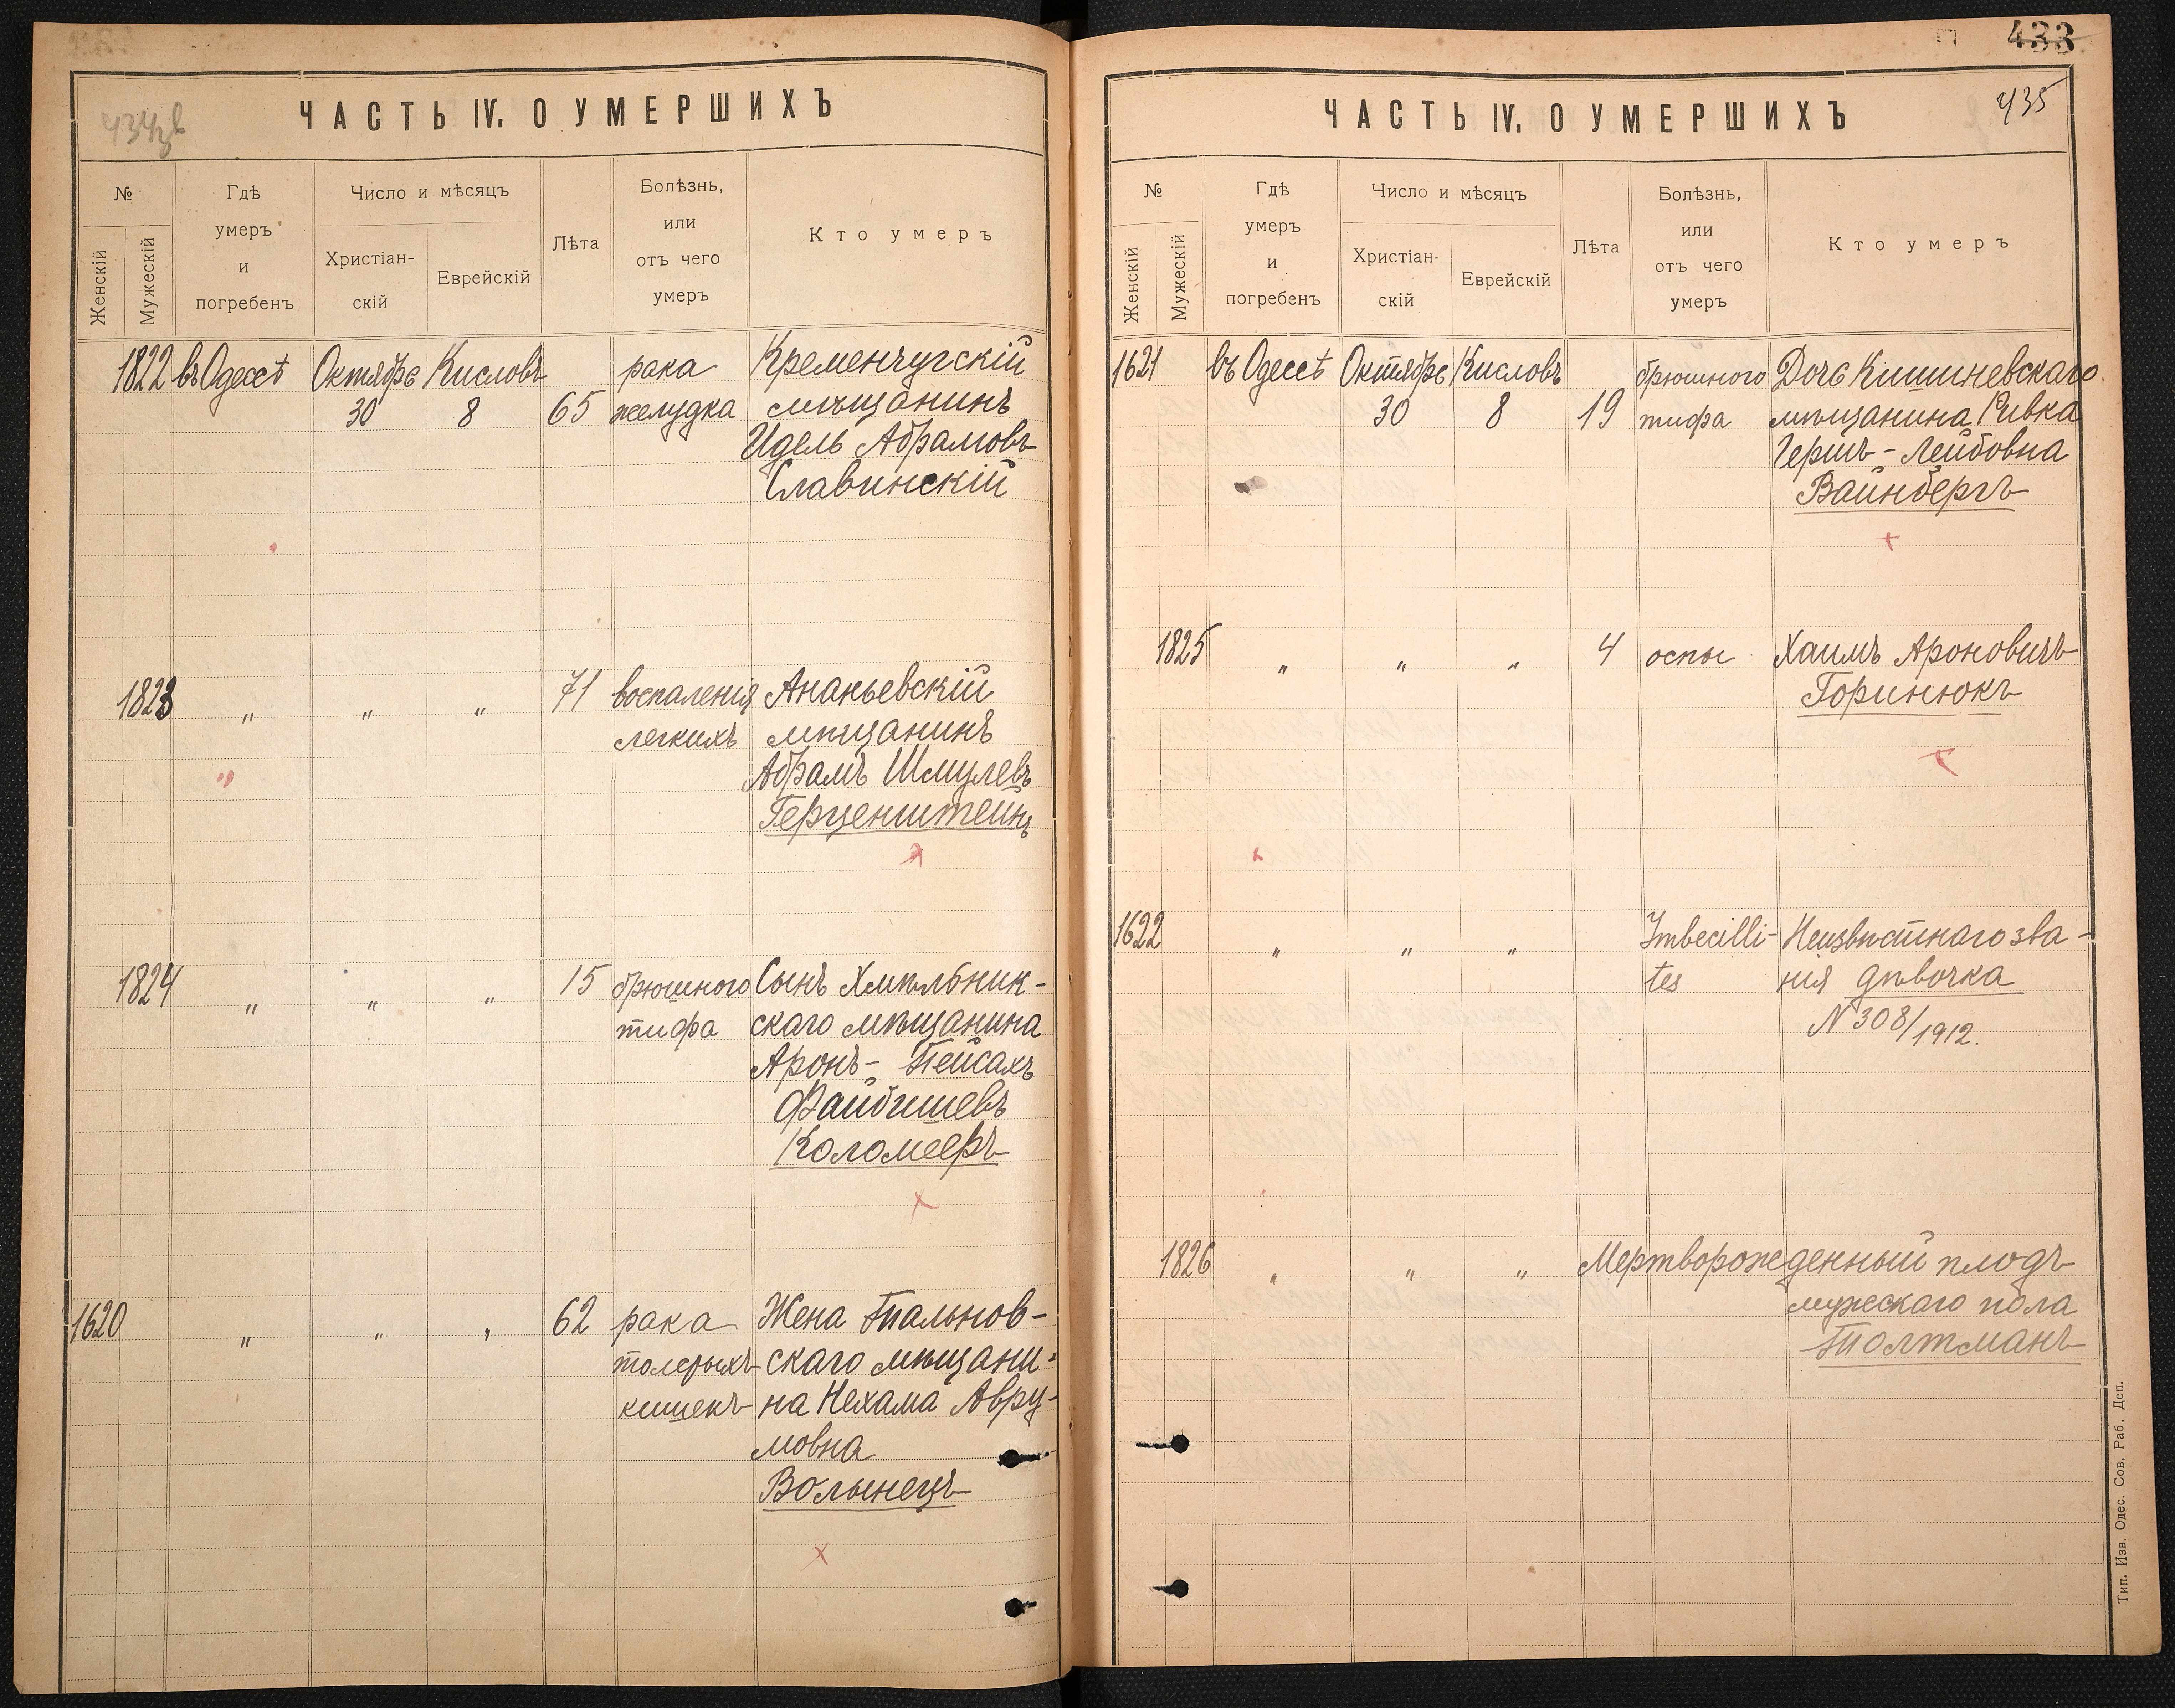 434 об
ЧАСТЬ IV. О УМЕРШИХЪ
№
Женскій
Мужескій
Гдѣ
умеръ
и
погребенъ
Число и мѣсяцъ
Христіан-
скій
Еврейскій
Лѣта
Болѣзнь,
или
отъ чего
умеръ
Кто умеръ
1822 въ Одессѣ Октября Кисловъ рака Кременчугскій
30 8 65 желудка мѣщанинъ
Идель Абрамовъ
Славинскій
1823 „ „ „ 71 воспаленія Ананьевскій
легкихъ мѣщанинъ
Абрамъ Шмулевъ
Герценштейнъ
1824 „ „ „ 15 брюшного Сынъ Хмѣльник-
тифа скаго мѣщанина
Аронъ-Пейсахъ
Файбишевъ
Коломееръ
1620 „ „ „ 62 рака Жена Тальнов-
толстыхъ скаго мѣщани-
кишекъ на Нехама Авру-
мовна
Волынецъ
433
435
ЧАСТЬ IV. О УМЕРШИХЪ
№
Женскій
Мужескій
Гдѣ
умеръ
и
погребенъ
Число и мѣсяцъ
Христіан-
скій
Еврейскій
Лѣта
Болѣзнь,
или
отъ чего
умеръ
Кто умеръ
1621 въ Одессѣ Октября Кисловъ брюшного Дочь Кишиневскаго
30 8 19 тифа мѣщанина Ривка
Гершъ-Лейбовна
Вайнбергъ
1825 „ „ „ 4 оспы Хаимъ Ароновичъ
Горинюкъ
1622 „ „ „ Imbecilli- Неизвѣстнаго зва-
tes нія дѣвочка
N 308/1912.
1826 „ „ „ Мертворожденный плодъ
мужескаго пола
Толтманъ
Тип. Изв. Одес. Сов. Раб. Деп.